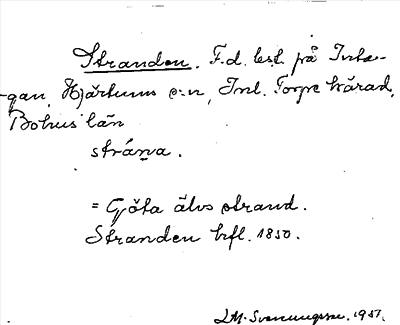 Stranden. F.d. lest. på Inta-
-gan, Hjärtums s:n, Inl. Torpe härad,
Bohus län
strána.
= Göta älvs strand.
Stranden hfl. 1850.
LM. Svenungsson. 1951.